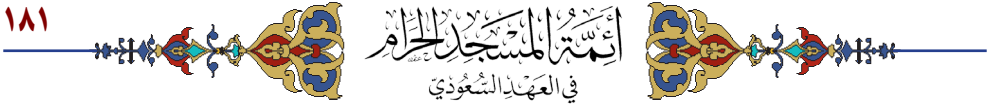 ١٨١
أَئِمَّةُ المَسْجِدِ الحَرَامِ
في العَهْدِ السُّعُودِيّ